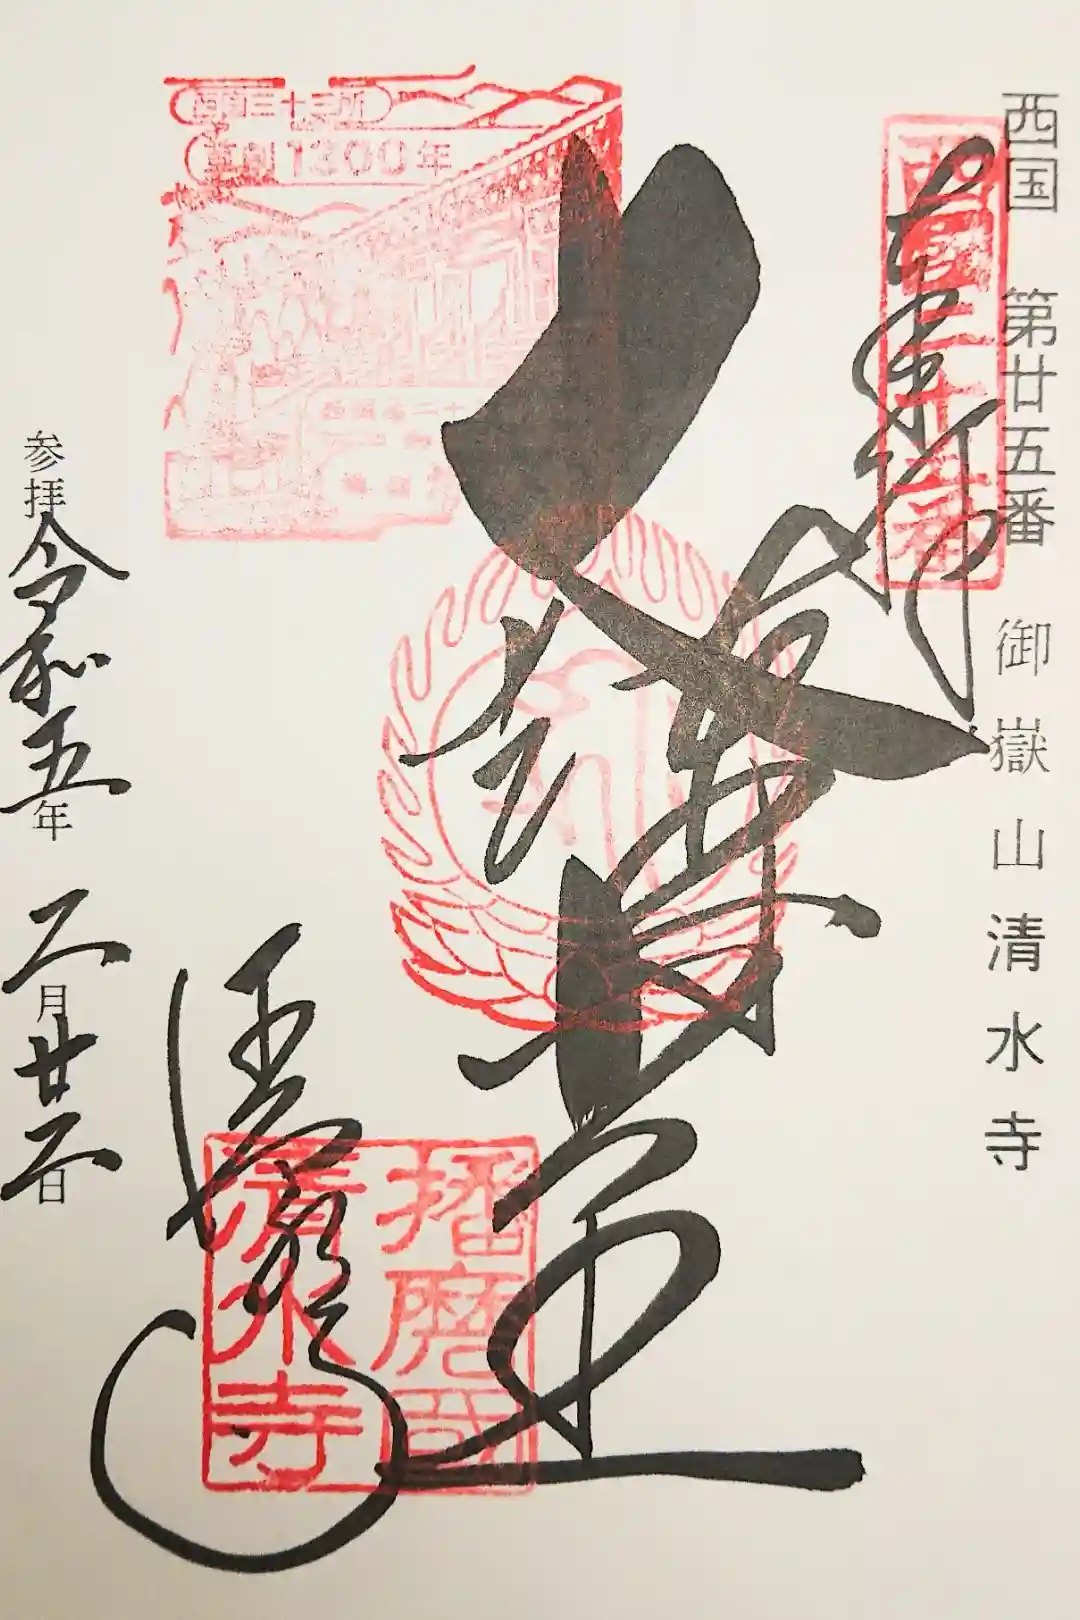 西国　第廿五番　御嶽山清水寺
西國二十五番
奉拝
大講堂
西国三十三所
草創1300年
播磨國
清水寺
清水寺
参拝令和五年　二月廿二日